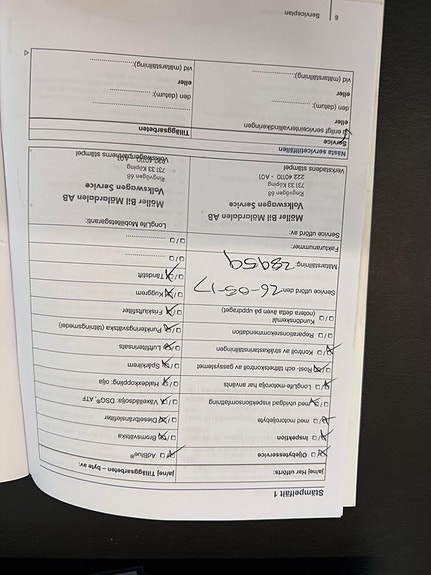 Stämpelfält 1
ja/nej Har utförts:
☐/☐ Oljebytesservice
☐/☐ Inspektion
☐/☐ med motoroljebyte
☐/☐ med utvidgad inspektionsomfattning
☐/☐ LongLife-motorolja har använts
☐/☐ Rost- och täthetskontroll av gassystemet
☐/☐ Kontroll av strålkastarinställningen
☐/☐ Reparationsrekommendation
☐/☐ Kundönskemål
(notera detta även på uppdraget)
Service utförd den: 26-05-17
Mätarställning: 28959
Fakturanummer:
Service utförd av:
Möller Bil Mälardalen AB
Volkswagen Service
Ringvägen 68
731 33 Köping
222 4010 - A01
Verkstadens stämpel
ja/nej Tilläggsarbeten – byte av:
☐/☐ AdBlue®
☐/☐ Bromsvätska
☐/☐ Dieselbränslefilter
☐/☐ Växellådsolja: DSG®, ATF
☐/☐ Haldexkoppling: olja
☐/☐ Spärrdifferential
☐/☐ Luftfilterinsats
☐/☐ Punkteringsvätska (tätningsmedel)
☐/☐ Friskluftsfilter
☐/☐ Kuggrem
☐/☐ Tändstift
☐/☐
☐/☐
LongLife Mobilitetsgaranti:
Möller Bil Mälardalen AB
Volkswagen Service
Ringvägen 68
731 33 Köping
222 4010 - A01
Volkswagenpartnerns stämpel
Nästa servicetillfällen
Service
enligt serviceintervallindikeringen
eller
den (datum):
eller
vid (mätarställning):
Tilläggsarbeten
den (datum):
eller
vid (mätarställning):
6 Serviceplan